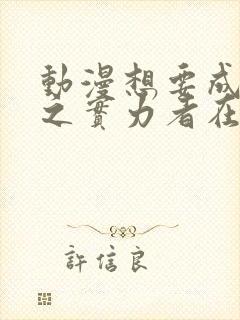 動漫想要成
之實力者在
許信良